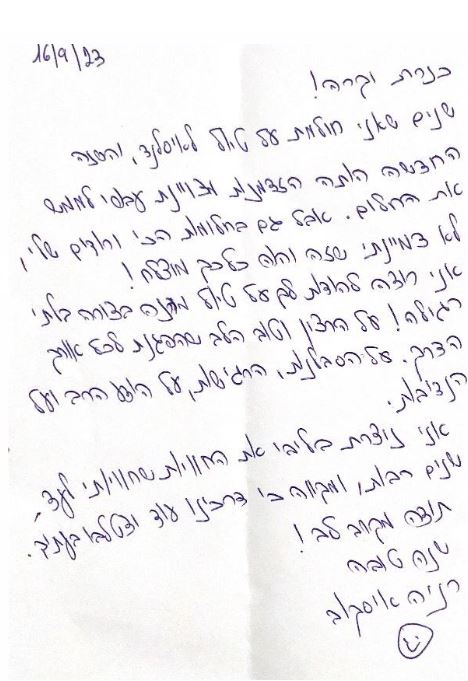 16/9/23
כנרת וברה!
שנים שאני חולמת על טיול לאיסלנד, והשנה
החדשה היתה הזדמנות מצויינת עבורי לממש
את החלום. אבל גם בחלומות הכי ורודים שלי,
לא דמיינתי שזה יהיה כל כך מוצלח!
אני רוצה להודות לך על טיול מהנה בצורה בלתי
רגילה! על הרצון וטוב הלב שהפגנת לכל אורך
הדרך. על הסבלנות, הרגישות, על הידע הרב ועל
הנדיבות.
אני נוצרת בליבי את החוויות שחוויתי לעוד,
שנים רבות, ומקווה כי דרכינו עוד יצטלבו בעתיד.
תודה מקרב לב!
שנה טובה
רניה אייסקוב